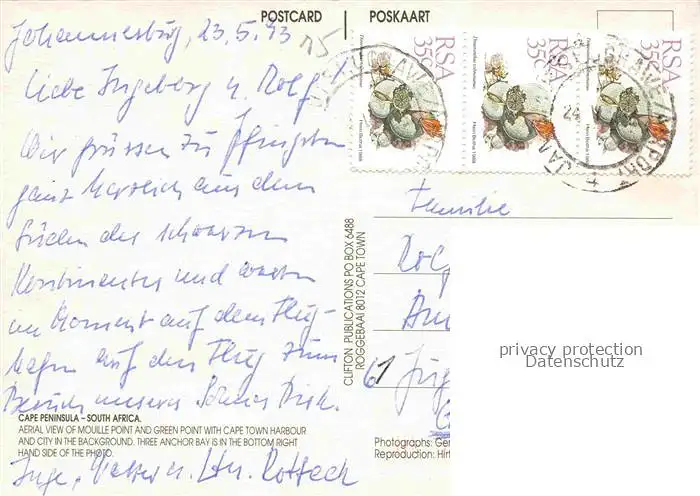 POSTCARD
POSKAART
Johannesburg, 23.5.93
Liebe Ingeborg u. Rolf!
Wir grüssen zu Pfingsten
ganz herzlich aus dem
Süden des schwarzen
Kontinentes und warten
im Moment auf dem Flug-
hafen auf den Flug zum
Besuch unseres Sohnes Dirk.
Inge,
RSA
35c
RSA
35c
RSA
35c
Familie
Rolf
Am
61
CLIFTON PUBLICATIONS PO BOX 6488
ROGGEBAAI 8012 CAPE TOWN
privacy protection
Datenschutz
CAPE PENINSULA – SOUTH AFRICA.
AERIAL VIEW OF MOUILLE POINT AND GREEN POINT WITH CAPE TOWN HARBOUR
AND CITY IN THE BACKGROUND. THREE ANCHOR BAY IS IN THE BOTTOM RIGHT
HAND SIDE OF THE PHOTO.
Photographs: Ger
Reproduction: Hirt